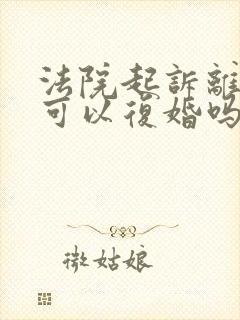 法院起訴離
可以復婚吗
微姑娘